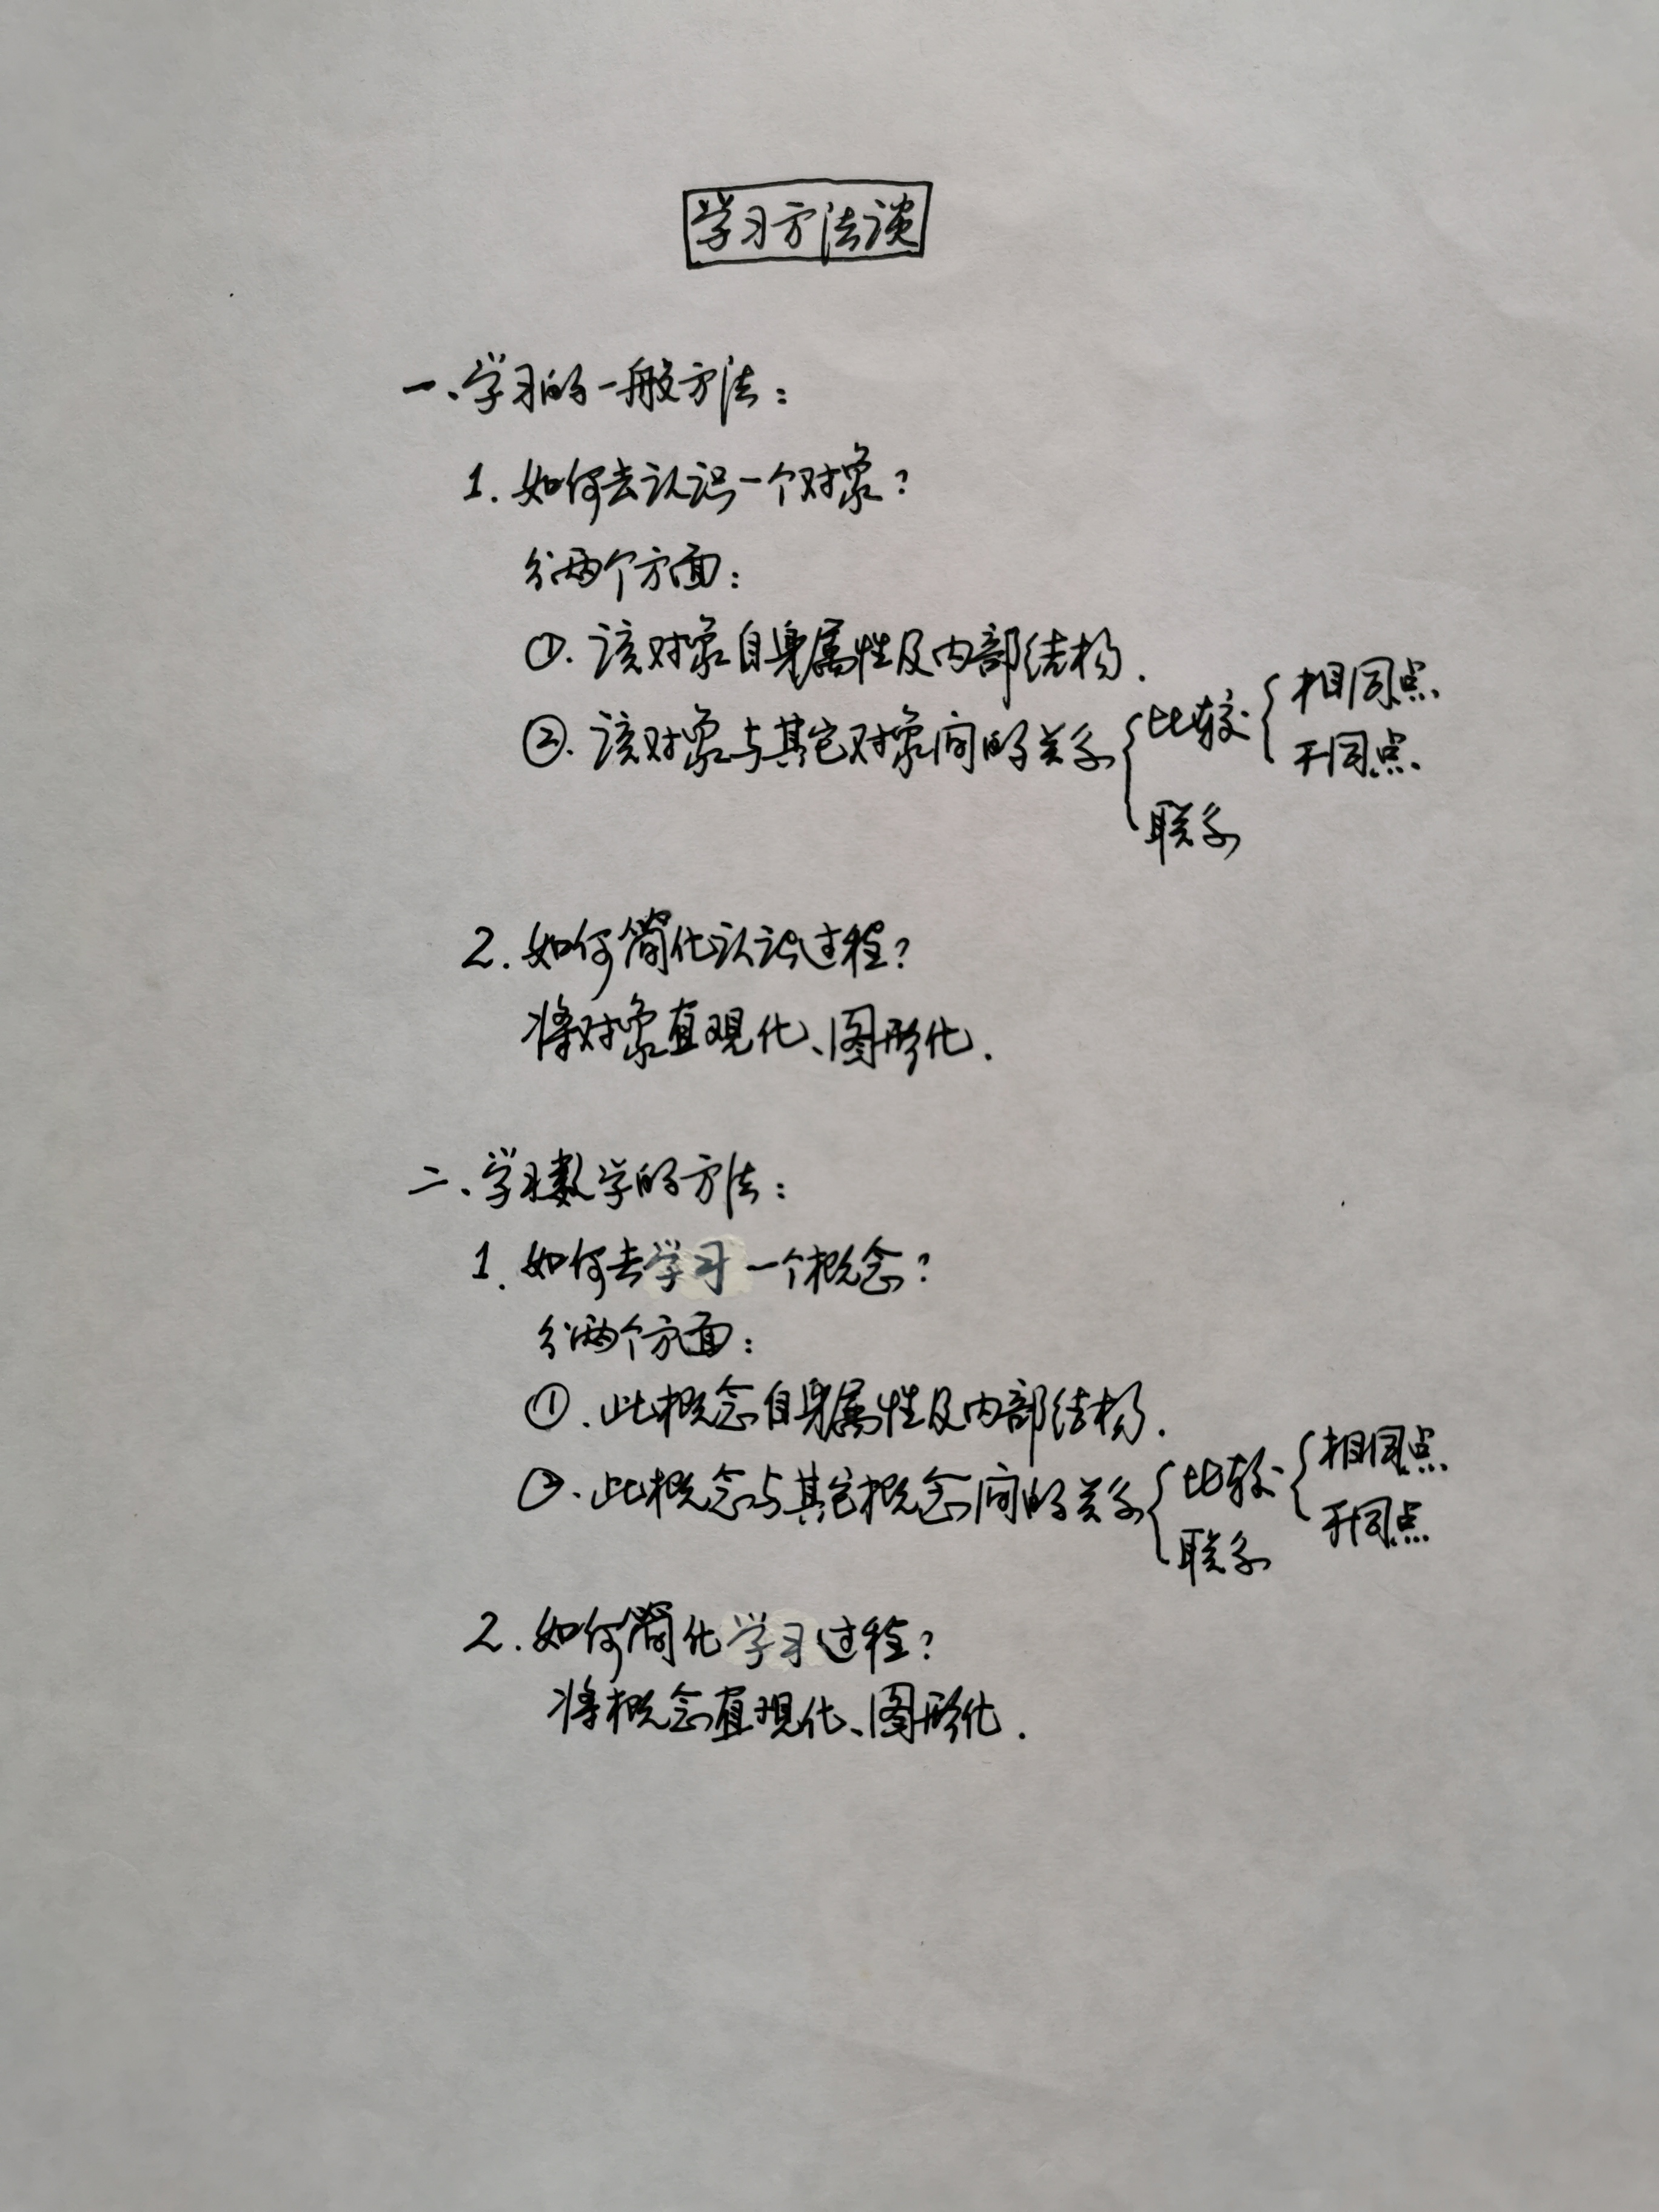 学习方法谈
一、学习的一般方法：
1. 如何去认识一个对象？
分两个方面：
①. 该对象自身属性及内部结构.
②. 该对象与其它对象间的关系{比较{相同点
不同点
联系
2. 如何简化认识过程？
将对象直观化、图形化.
二、学习数学的方法：
1. 如何去学习一个概念？
分两个方面：
①. 此概念自身属性及内部结构.
②. 此概念与其它概念间的关系{比较{相同点
不同点
联系
2. 如何简化学习过程？
将概念直观化、图形化.